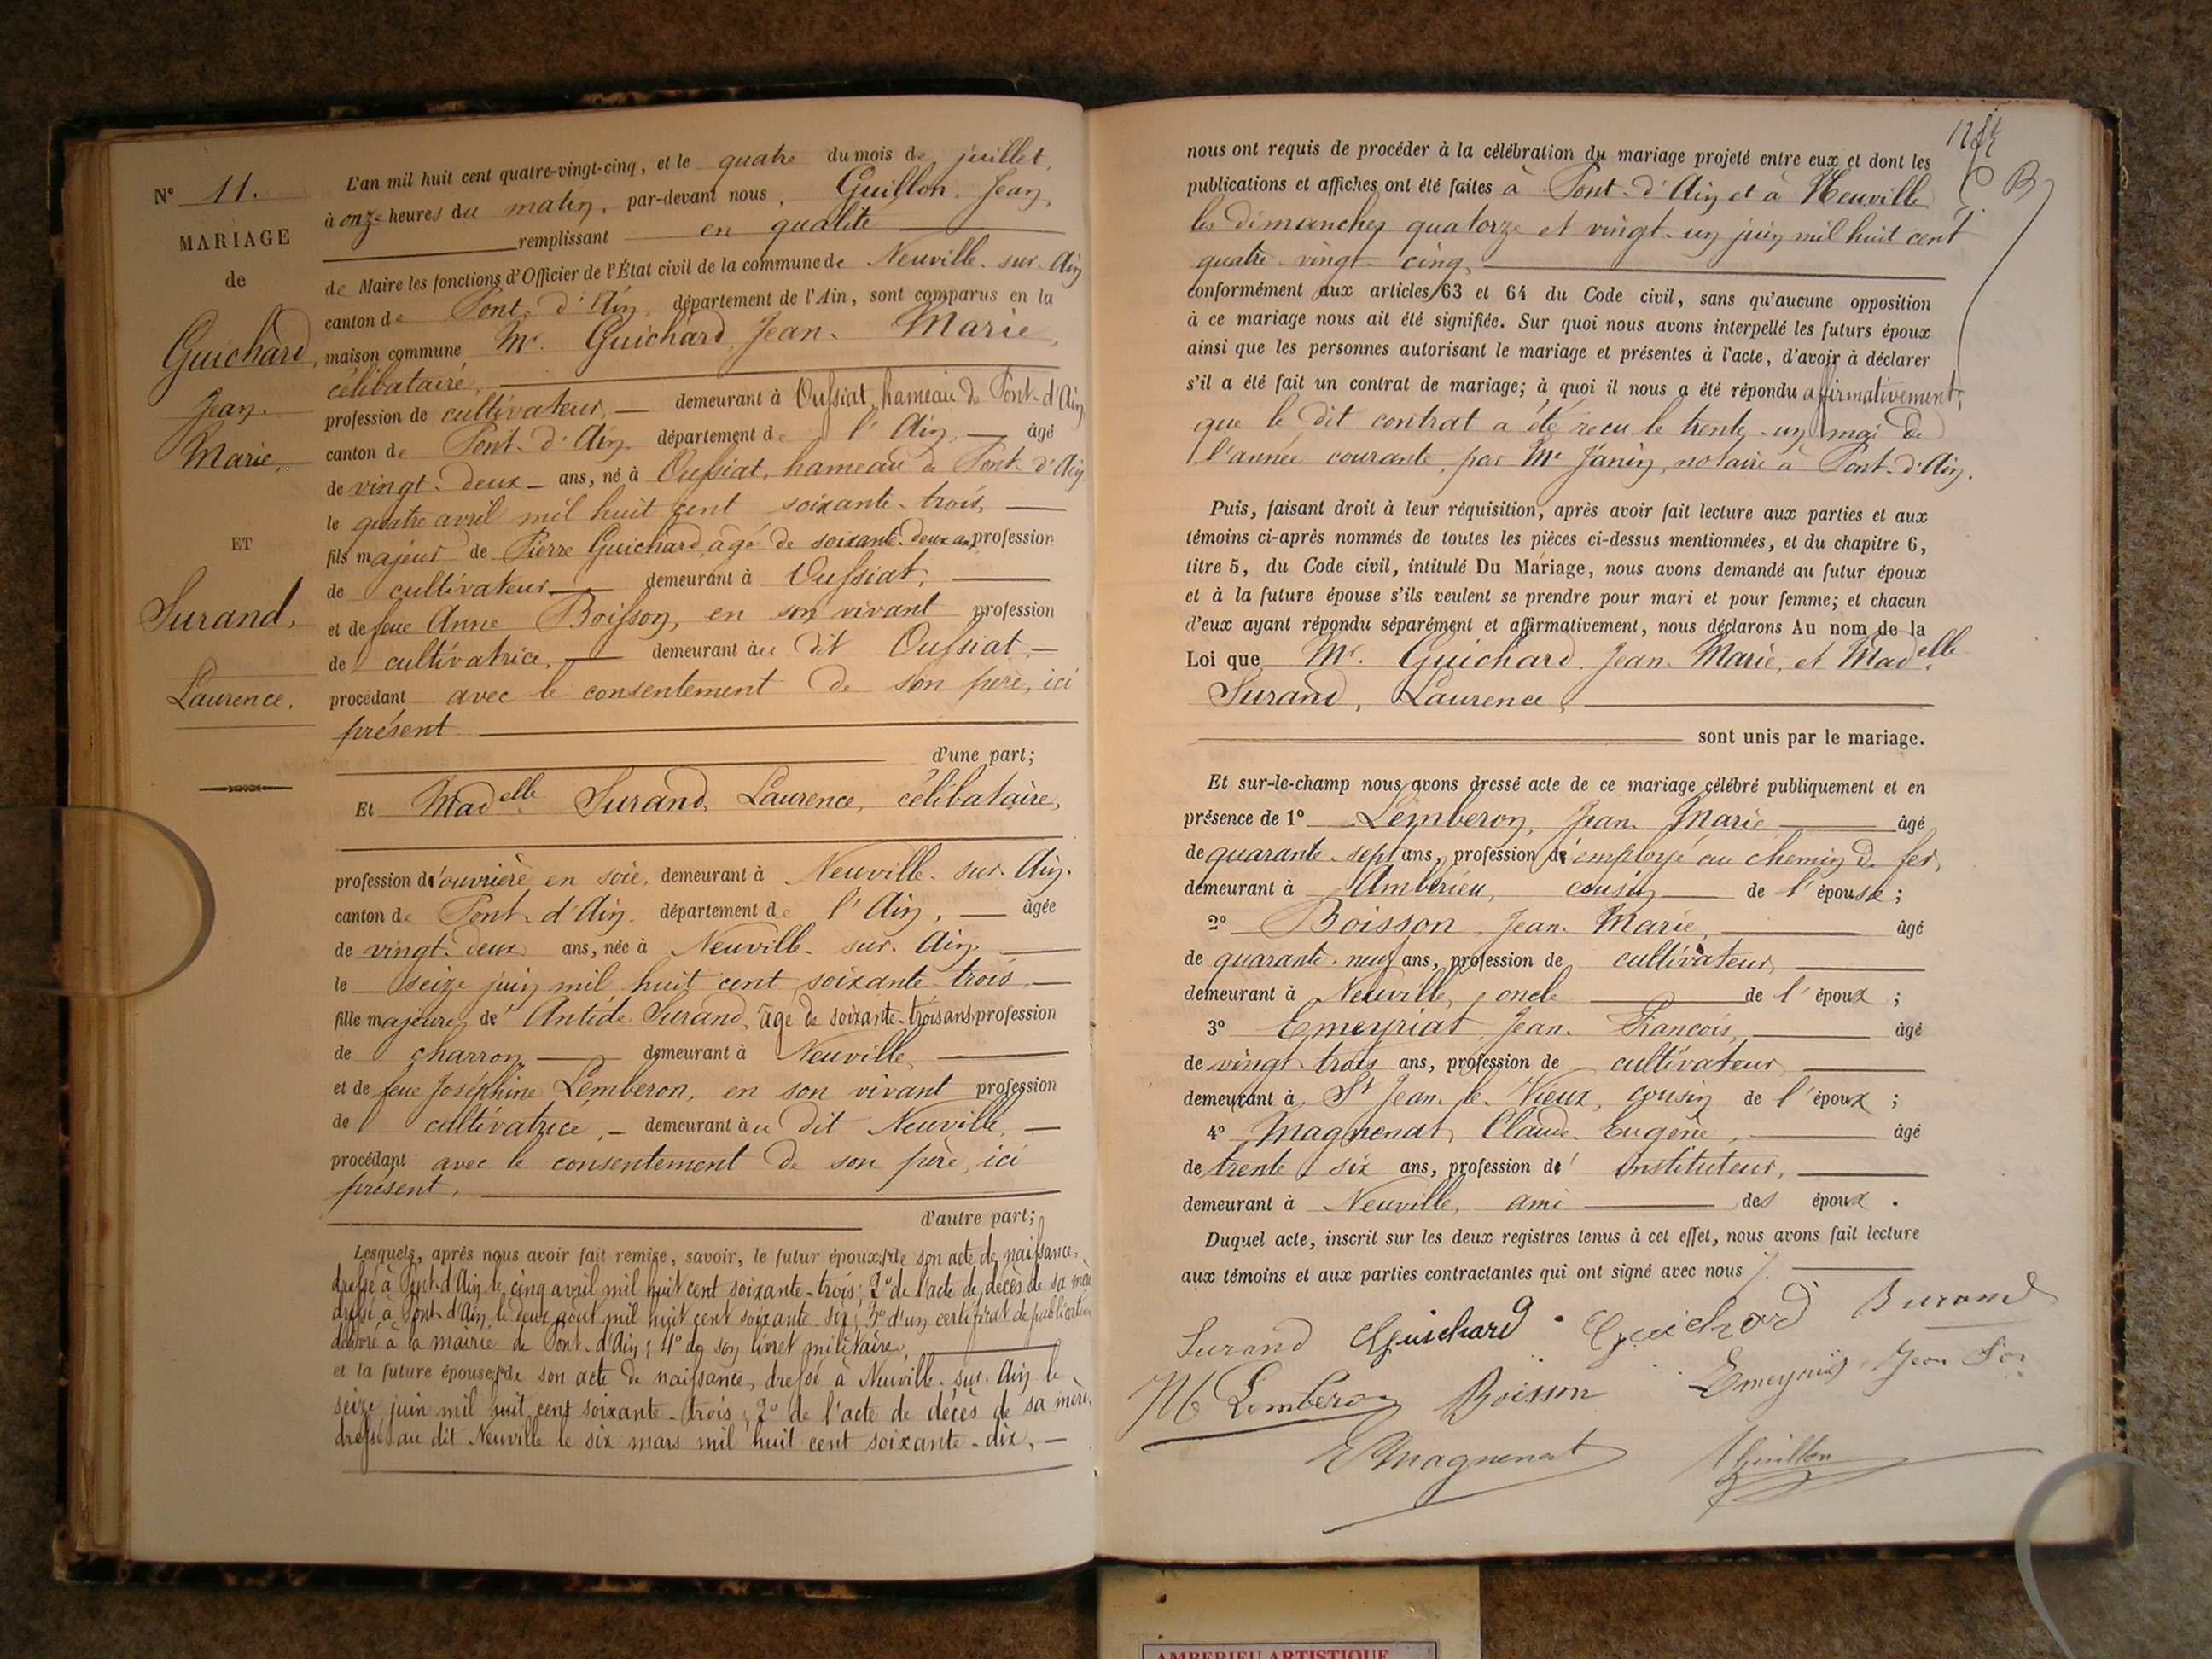 N° 11.
MARIAGE
de
Guichard,
Jean-
Marie,
ET
Surand,
Laurence.
L'an mil huit cent quatre-vingt-cinq, et le quatre du mois de juillet,
à onze heures du matin, par-devant nous, Guillon, Jean,
remplissant en qualité
de Maire les fonctions d'Officier de l'État civil de la commune de Neuville-sur-Ain
canton de Pont-d'Ain, département de l'Ain, sont comparus en la
maison commune Mr. Guichard, Jean-Marie,
célibataire,
profession de cultivateur, demeurant à Oussiat, hameau de Pont-d'Ain
canton de Pont-d'Ain, département de l'Ain, âgé
de vingt-deux ans, né à Oussiat, hameau de Pont-d'Ain,
le quatre avril mil huit cent soixante-trois,
fils majeur de Pierre Guichard, âgé de soixante-deux ans, profession
de cultivateur demeurant à Oussiat,
et de feue Anne Boisson, en son vivant profession
de cultivatrice, demeurant au dit Oussiat
procédant avec le consentement de son père, ici
présent
d'une part;
Et Madelle Surand, Laurence, célibataire,
profession d'ouvrière en soie, demeurant à Neuville-sur-Ain,
canton de Pont-d'Ain, département de l'Ain, âgée
de vingt-deux ans, née à Neuville-sur-Ain,
le seize juin mil huit cent soixante-trois,
fille majeure, d'Antide Surand, âgé de soixante-trois ans, profession
de charron, demeurant à Neuville,
et de feue Joséphine Lemberon, en son vivant profession
de cultivatrice, demeurant au dit Neuville,
procédant avec le consentement de son père, ici
présent,
d'autre part;
Lesquels, après nous avoir fait remise, savoir, le futur époux, 1° de son acte de naissance,
dressé à Pont-d'Ain le cinq avril mil huit cent soixante-trois; 2° de l'acte de décès de sa mère
dressé à Pont-d'Ain, le deux août mil huit cent soixante-six; 3° d'un certificat de publication
délivré à la mairie de Pont-d'Ain; 4° de son livret militaire,
et la future épouse, 1° de son acte de naissance, dressé à Neuville-sur-Ain le
seize juin mil huit cent soixante-trois; 2° de l'acte de décès de sa mère,
dressé au dit Neuville le six mars mil huit cent soixante-dix,
B
nous ont requis de procéder à la célébration du mariage projeté entre eux et dont les
publications et affiches ont été faites à Pont-d'Ain et à Neuville
les dimanches quatorze et vingt-un juin mil huit cent
quatre-vingt-cinq,
conformément aux articles 63 et 64 du Code civil, sans qu'aucune opposition
à ce mariage nous ait été signifiée. Sur quoi nous avons interpellé les futurs époux
ainsi que les personnes autorisant le mariage et présentes à l'acte, d'avoir à déclarer
s'il a été fait un contrat de mariage; à quoi il nous a été répondu affirmativement,
que le dit contrat a été reçu le trente-un mai de
l'année courante, par Me Janin, notaire à Pont-d'Ain.
Puis, faisant droit à leur réquisition, après avoir fait lecture aux parties et aux
témoins ci-après nommés de toutes les pièces ci-dessus mentionnées, et du chapitre 6,
titre 5, du Code civil, intitulé Du Mariage, nous avons demandé au futur époux
et à la future épouse s'ils veulent se prendre pour mari et pour femme; et chacun
d'eux ayant répondu séparément et affirmativement, nous déclarons Au nom de la
Loi que Mr. Guichard, Jean-Marie, et Madelle
Surand, Laurence,
sont unis par le mariage.
Et sur-le-champ nous avons dressé acte de ce mariage célébré publiquement et en
présence de 1° Lemberon, Jean-Marie âgé
de quarante-sept ans, profession d'employé au chemin de fer,
demeurant à Ambérieu, cousin de l'épouse;
2° Boisson, Jean-Marie, âgé
de quarante-neuf ans, profession de cultivateur
demeurant à Neuville, oncle de l'époux;
3° Emeyriat, Jean-François, âgé
de vingt-trois ans, profession de cultivateur
demeurant à St Jean-le-Vieux, cousin de l'époux;
4° Magnenat, Claude-Eugène, âgé
de trente-six ans, profession d'instituteur,
demeurant à Neuville, ami des époux.
Duquel acte, inscrit sur les deux registres tenus à cet effet, nous avons fait lecture
aux témoins et aux parties contractantes qui ont signé avec nous.
Surand Guichard Guichard Surand
Lemberon Boisson Jean
Magnenat Guillon
AMBERIEU ARTISTIQUE